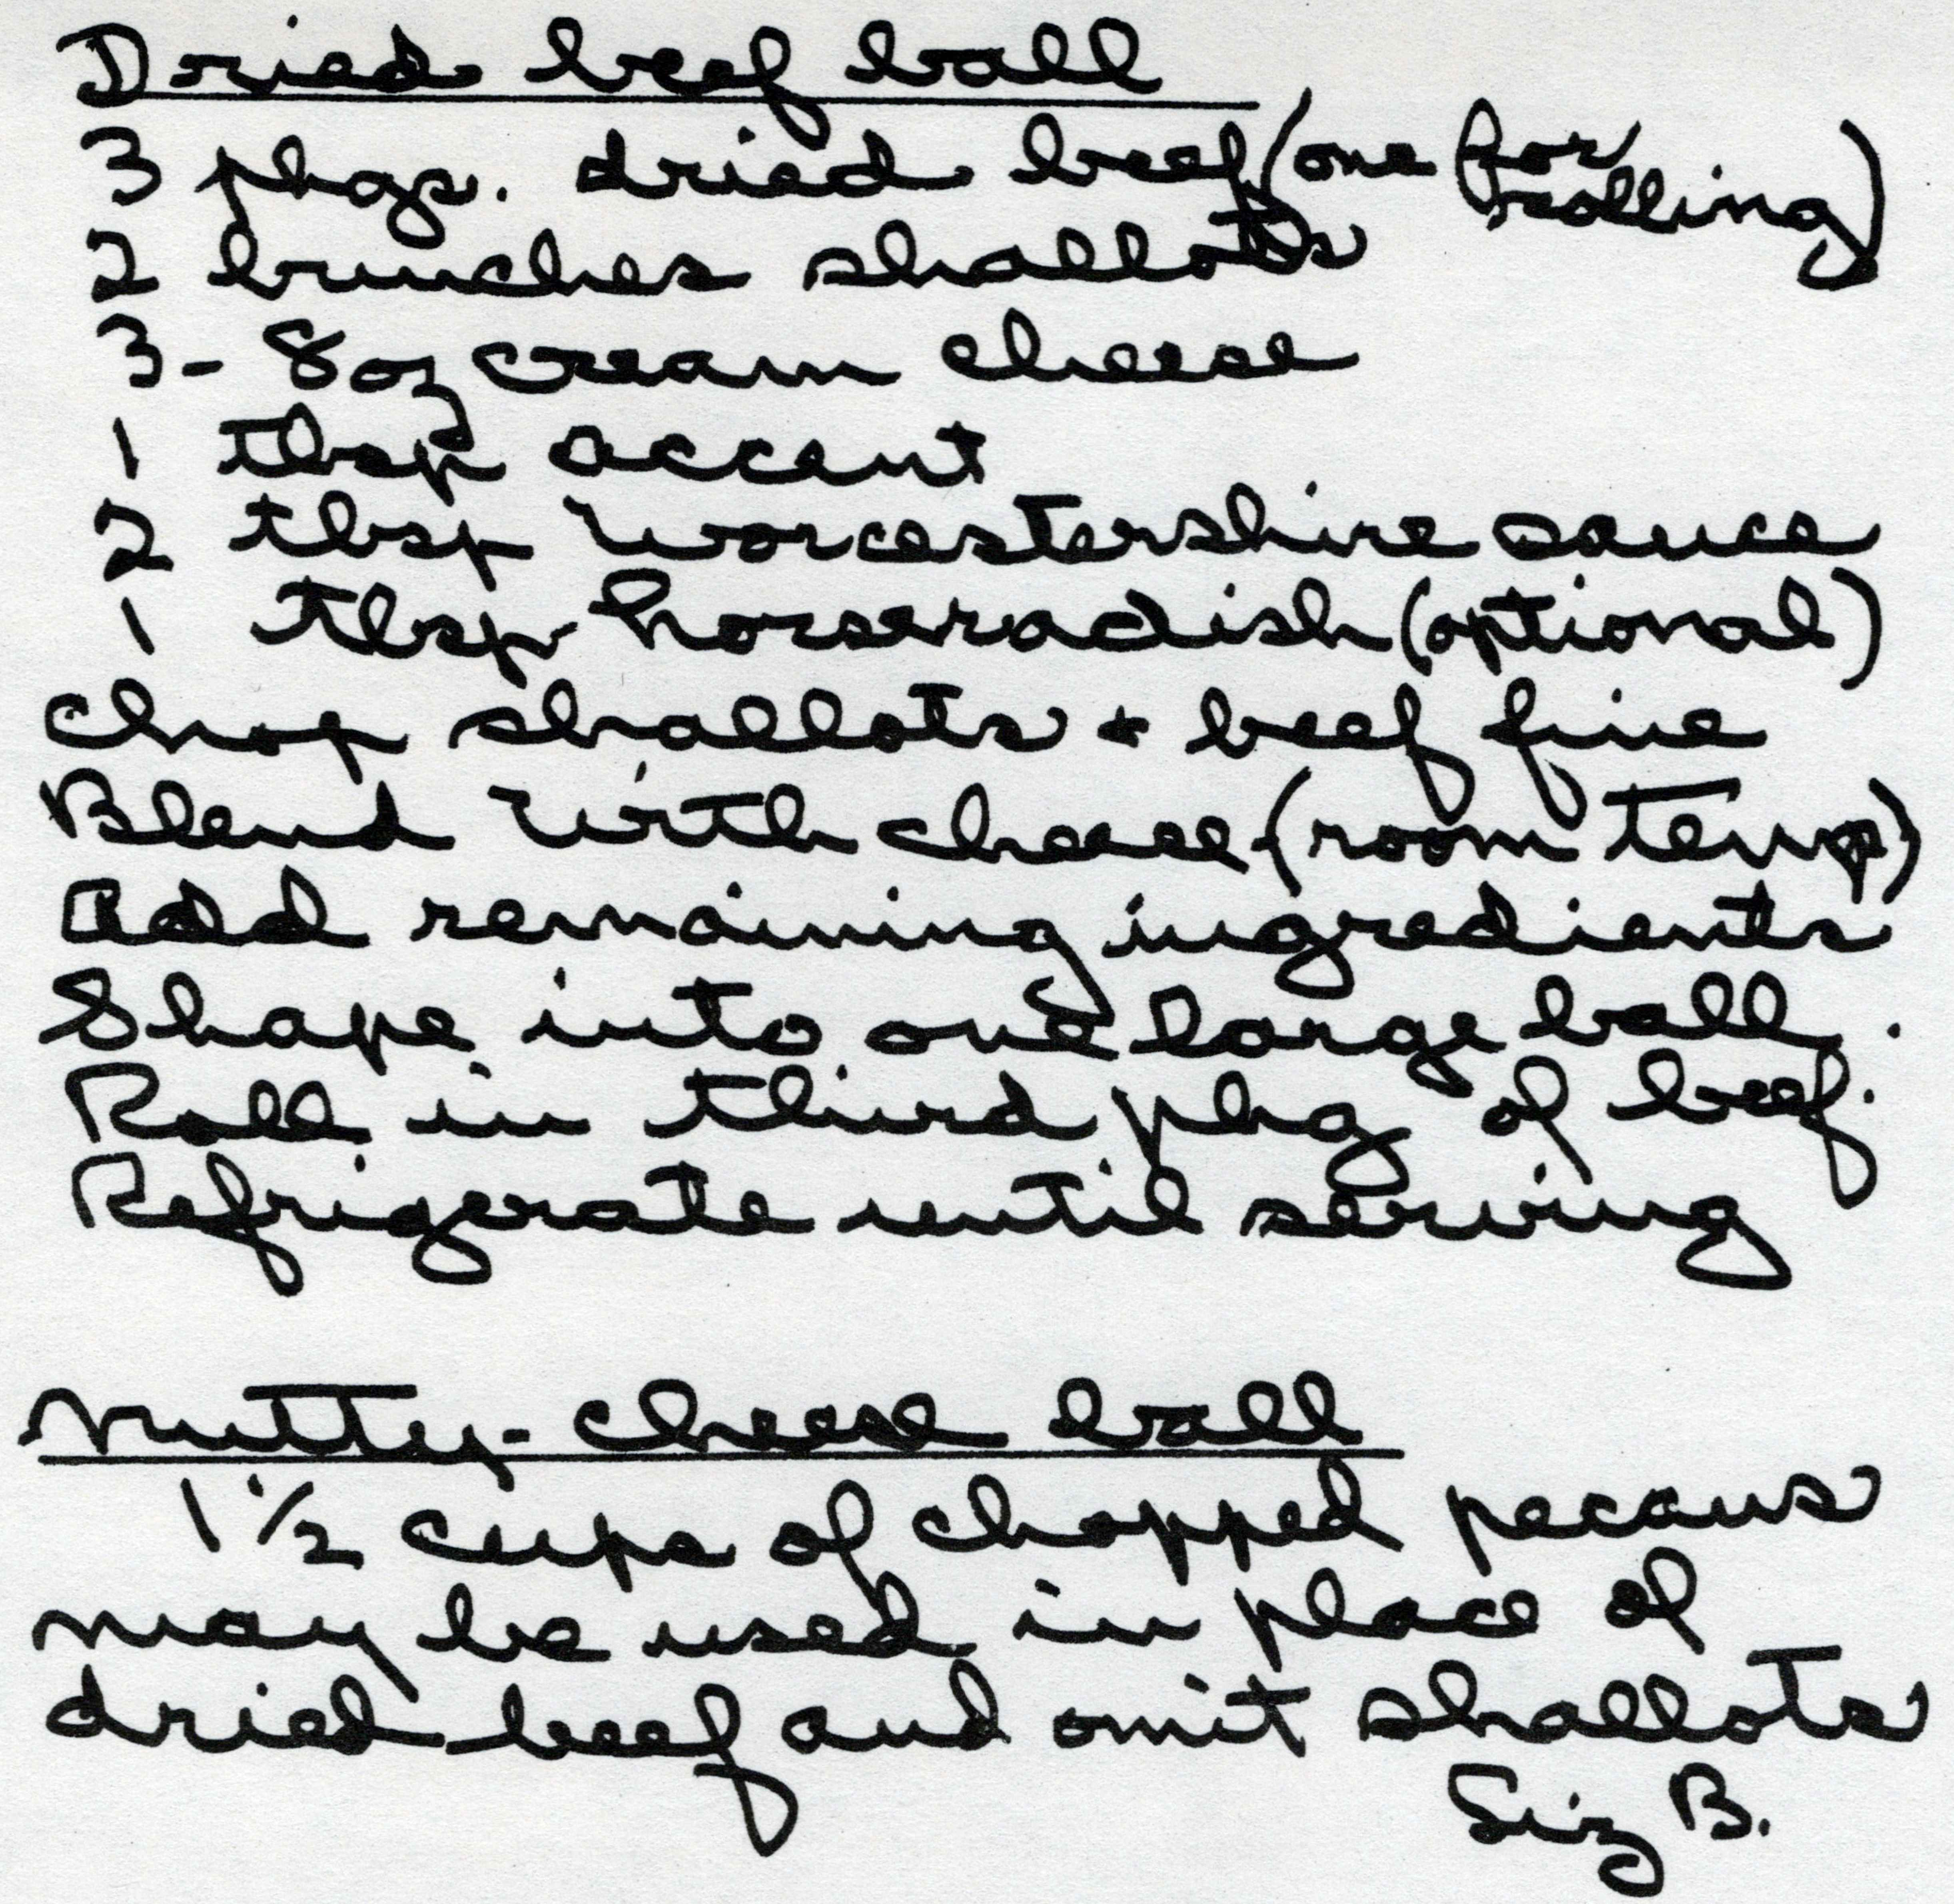 Dried beef ball
3 pkgs. dried beef (one for rolling)
2 bunches shallots
3 - 8 oz cream cheese
1 tbsp accent
2 tbsp worcestershire sauce
1 tbsp horseradish (optional)
Chop shallots + beef fine
Blend with cheese (room temp)
Add remaining ingredients
Shape into one large ball.
Roll in third pkg of beef.
Refrigerate until serving
Nutty-cheese ball
1 1/2 cups of chopped pecans
may be used in place of
dried beef and omit shallots
Liz B.